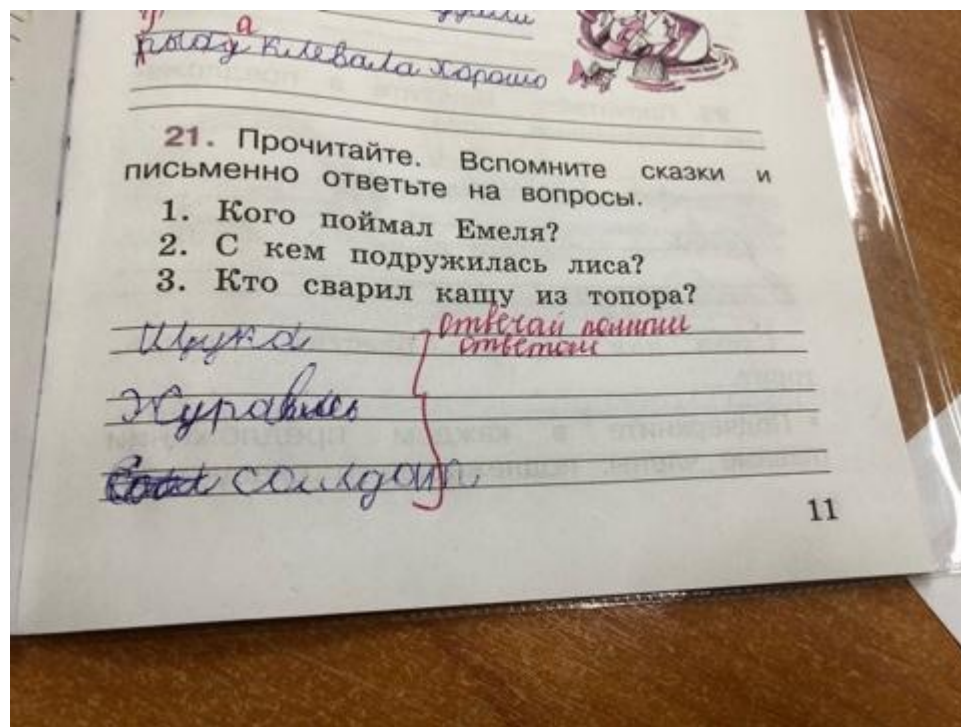 рыба клевала хорошо
21. Прочитайте. Вспомните сказки и
письменно ответьте на вопросы.
1. Кого поймал Емеля?
2. С кем подружилась лиса?
3. Кто сварил кашу из топора?
Щука
отвечай полным
ответом
Журавль
солдат
11